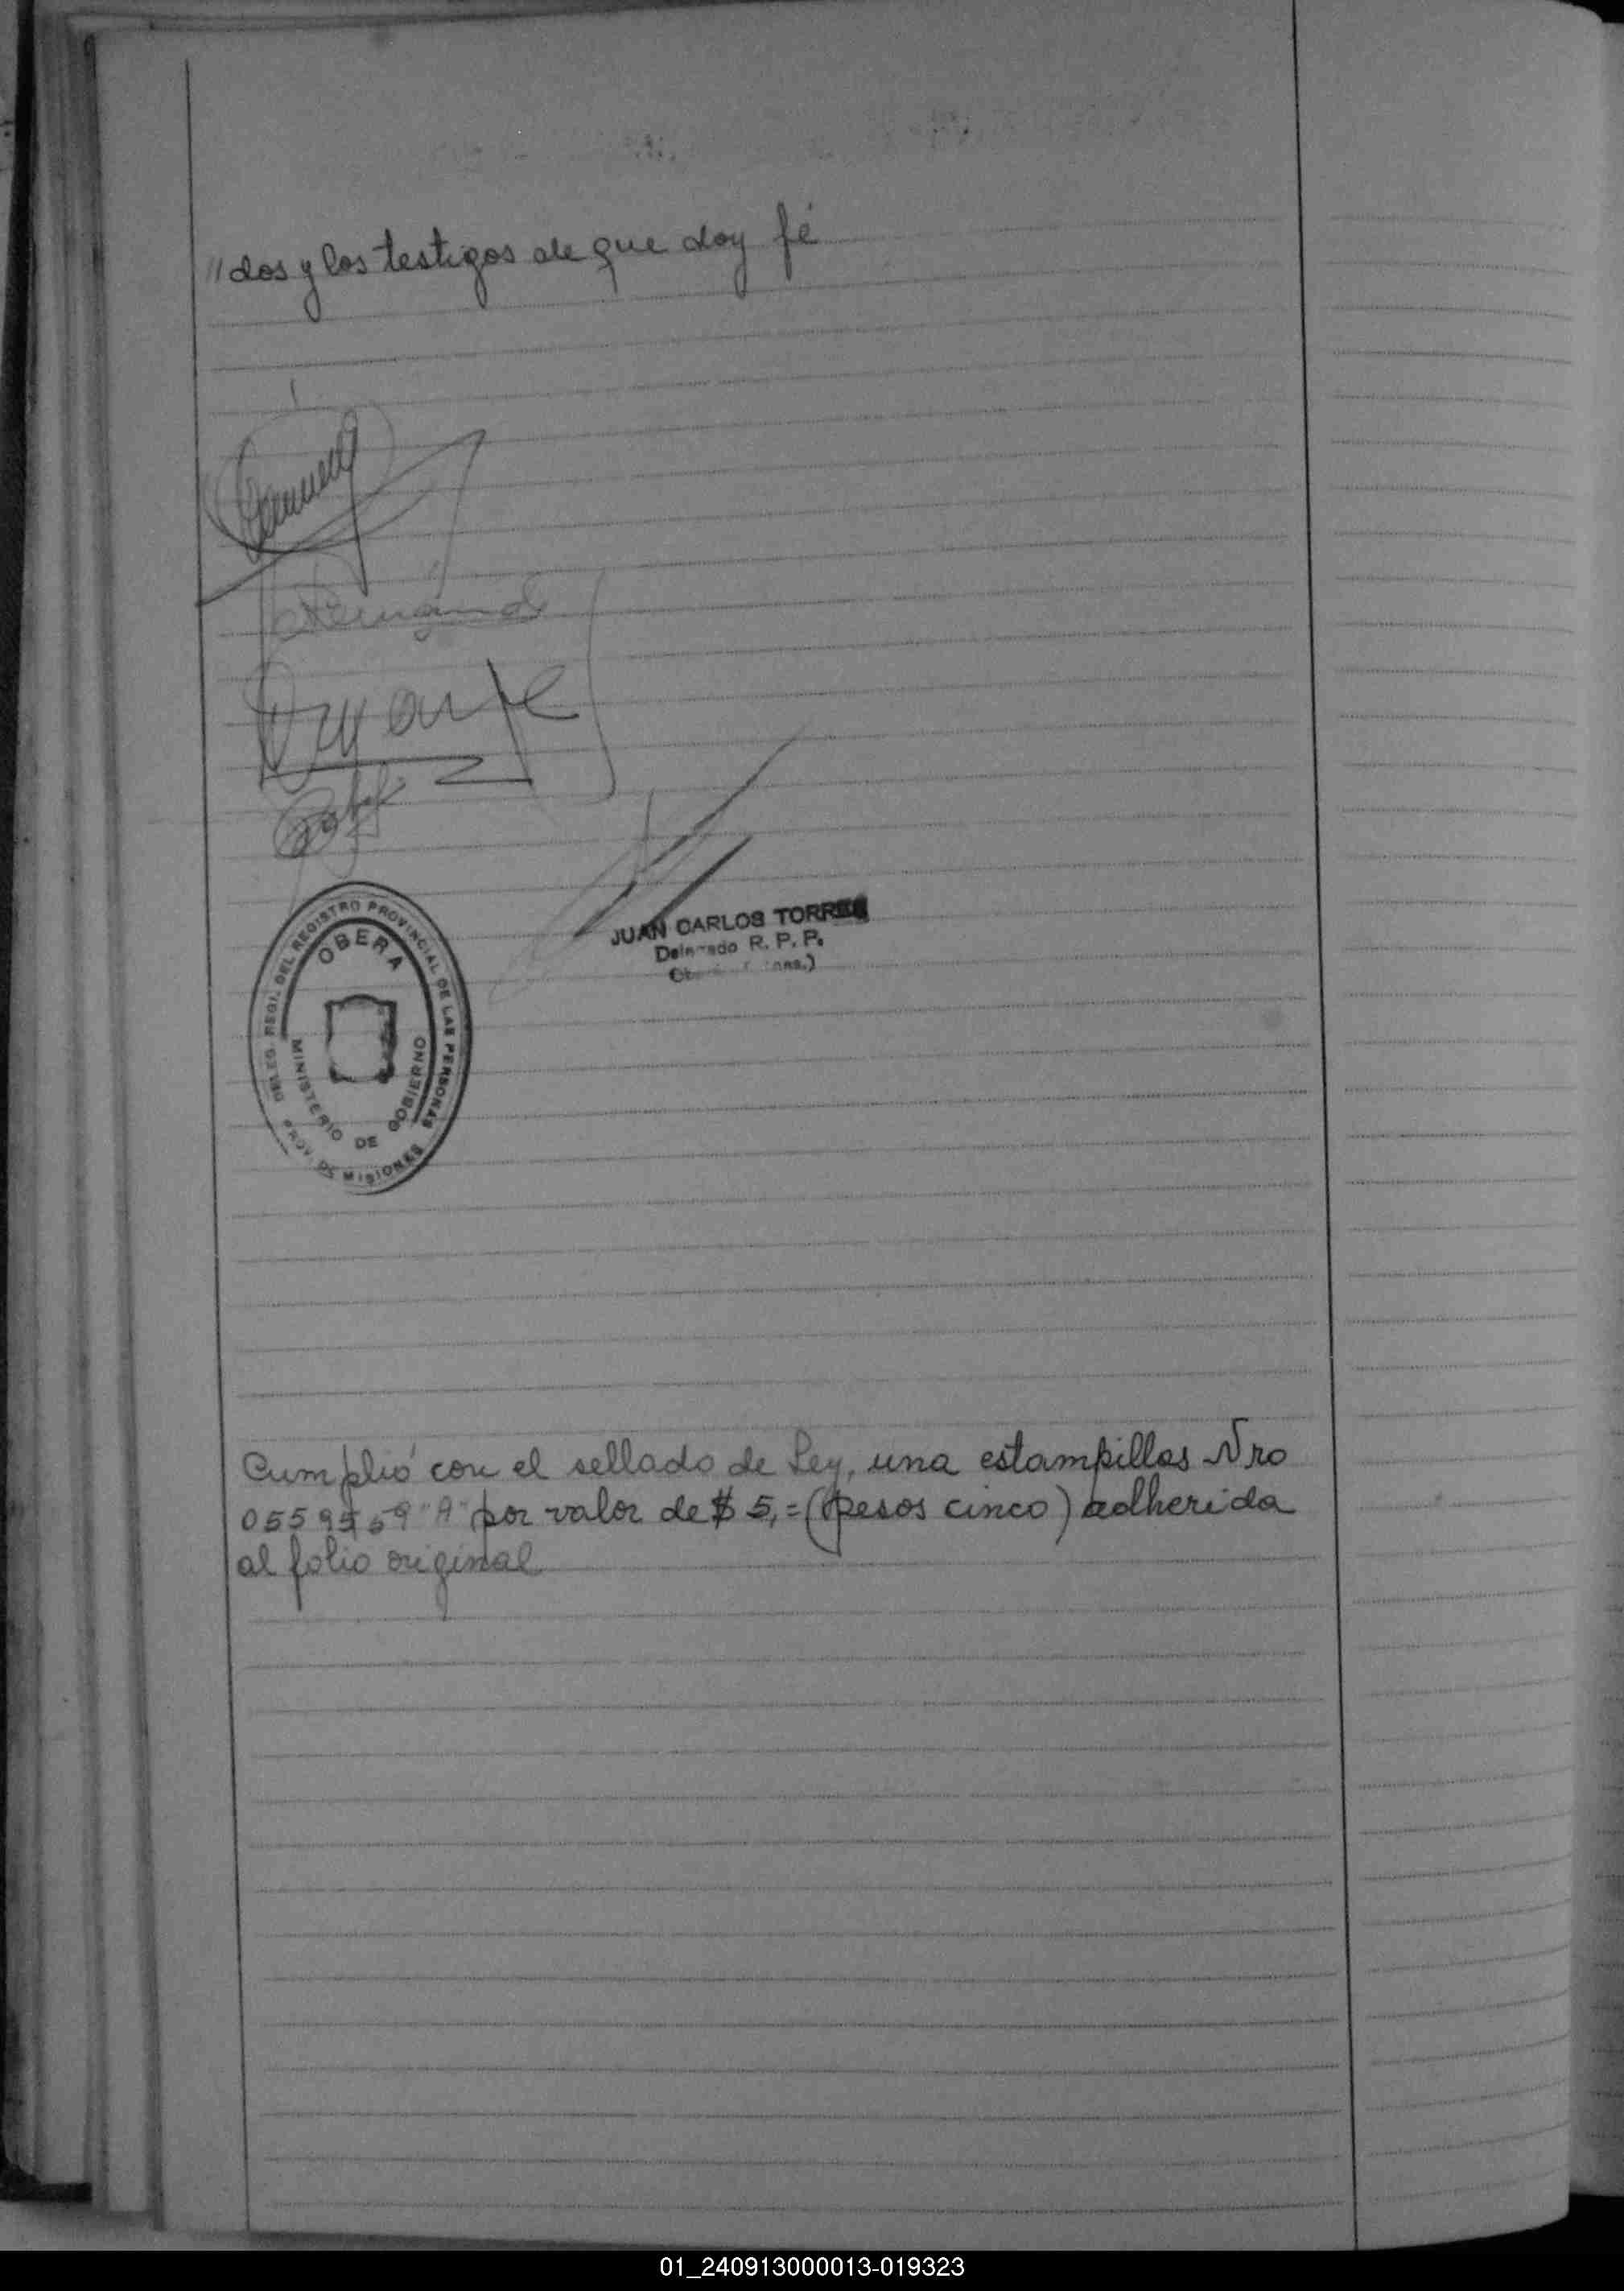 "dos y los testigos de que doy fé
JUAN CARLOS TORRES
Delegado R. P. P.
DELEG. REGI. DEL REGISTRO PROVINCIAL DE LAS PERSONAS
OBERA
MINISTERIO DE GOBIERNO
PROV. DE MISIONES
Cumplió con el sellado de Ley, una estampillas Nro
0559559 "A" por valor de $ 5,= (pesos cinco) adherida
al folio original
01_240913000013-019323